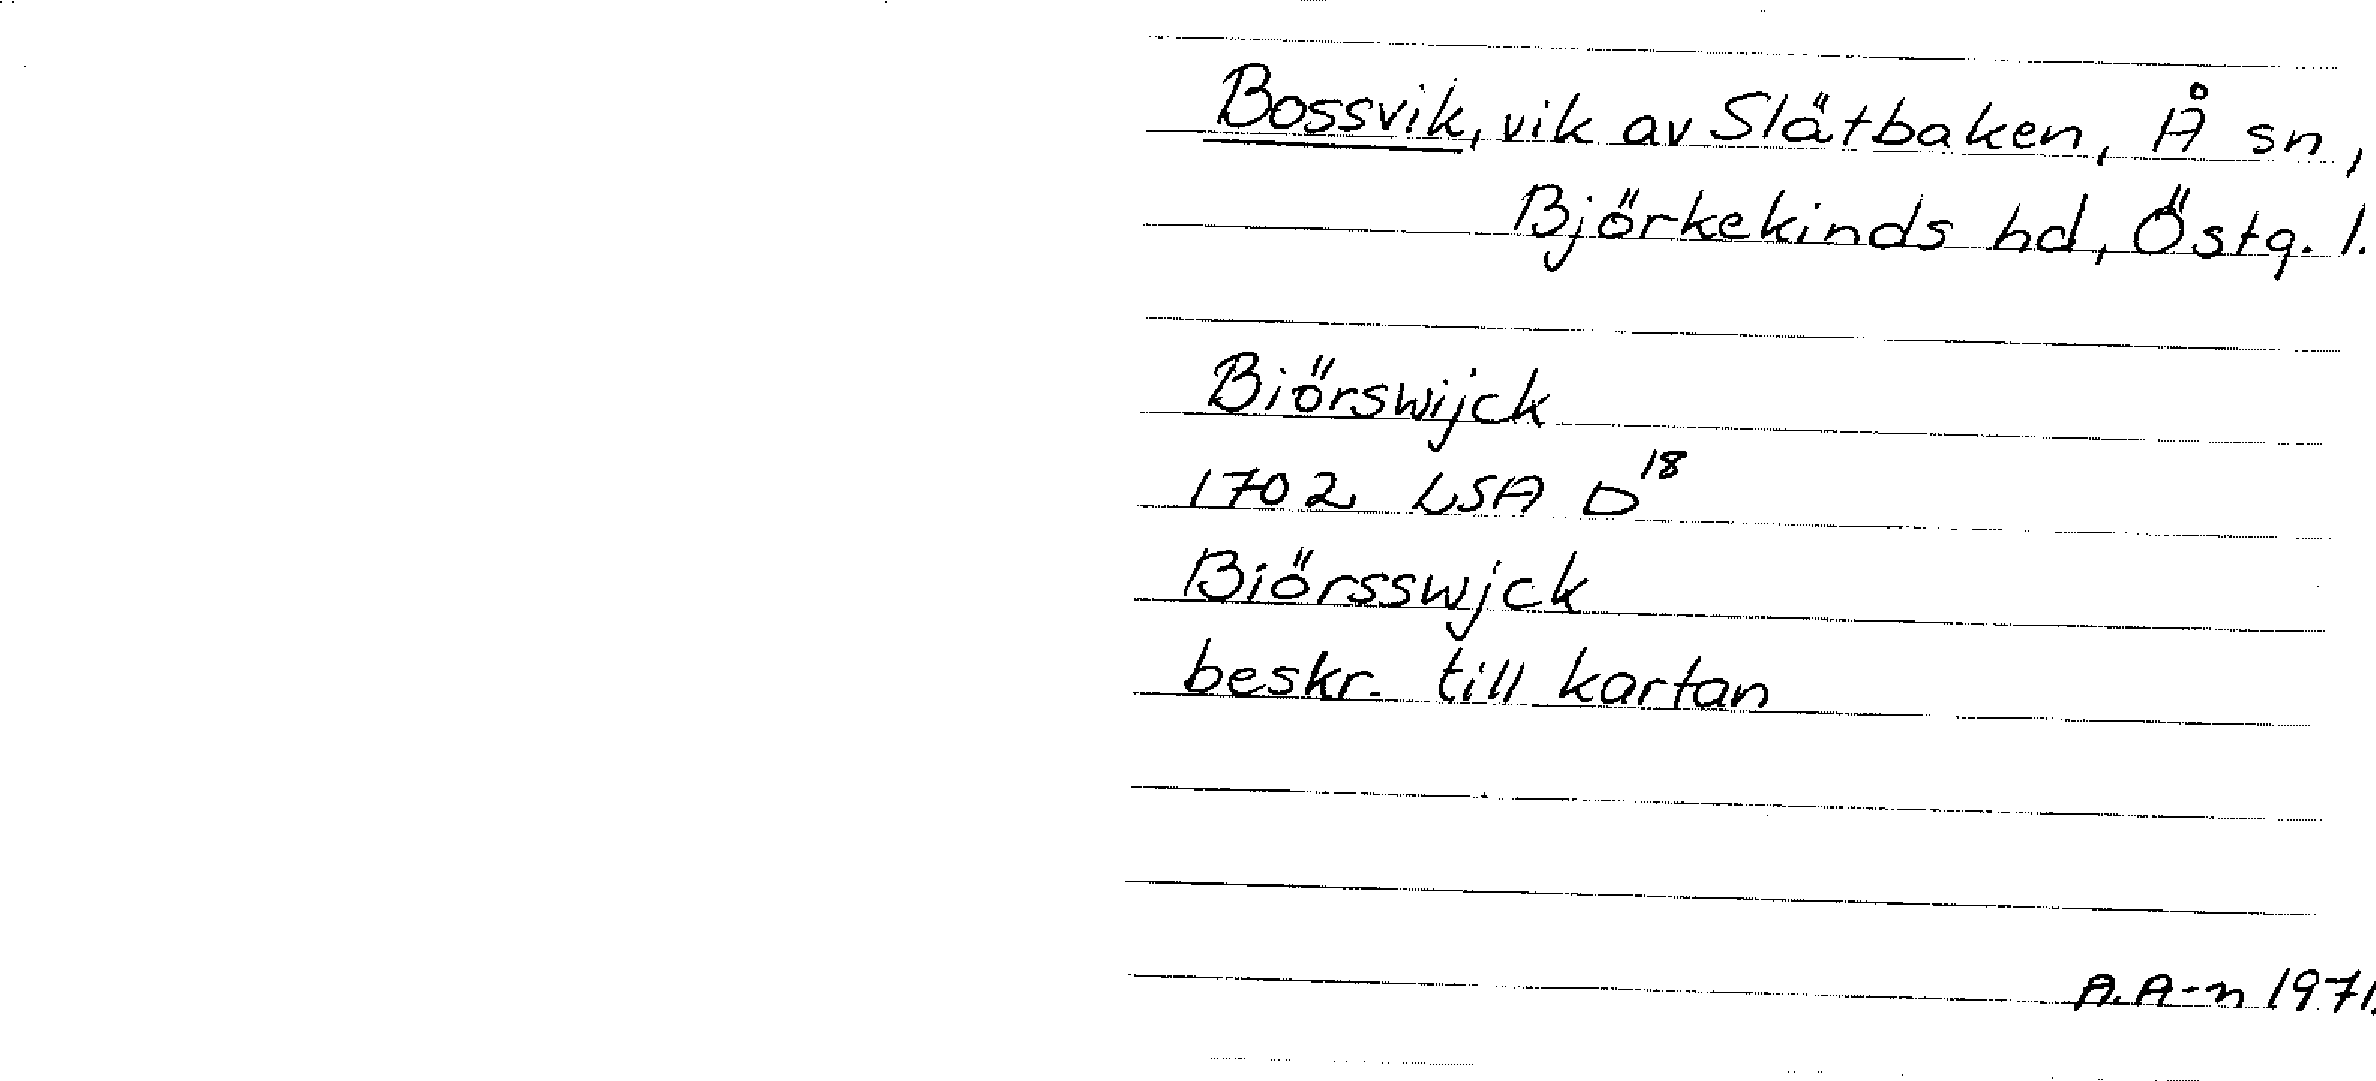 Bossvik, vik av Slätbaken, Å sn,
Björkekinds hd, Östg. l.
Biörswijck
1702 LSA D¹⁸
Biörsswjck
beskr. till kartan
A.A-n 1971.